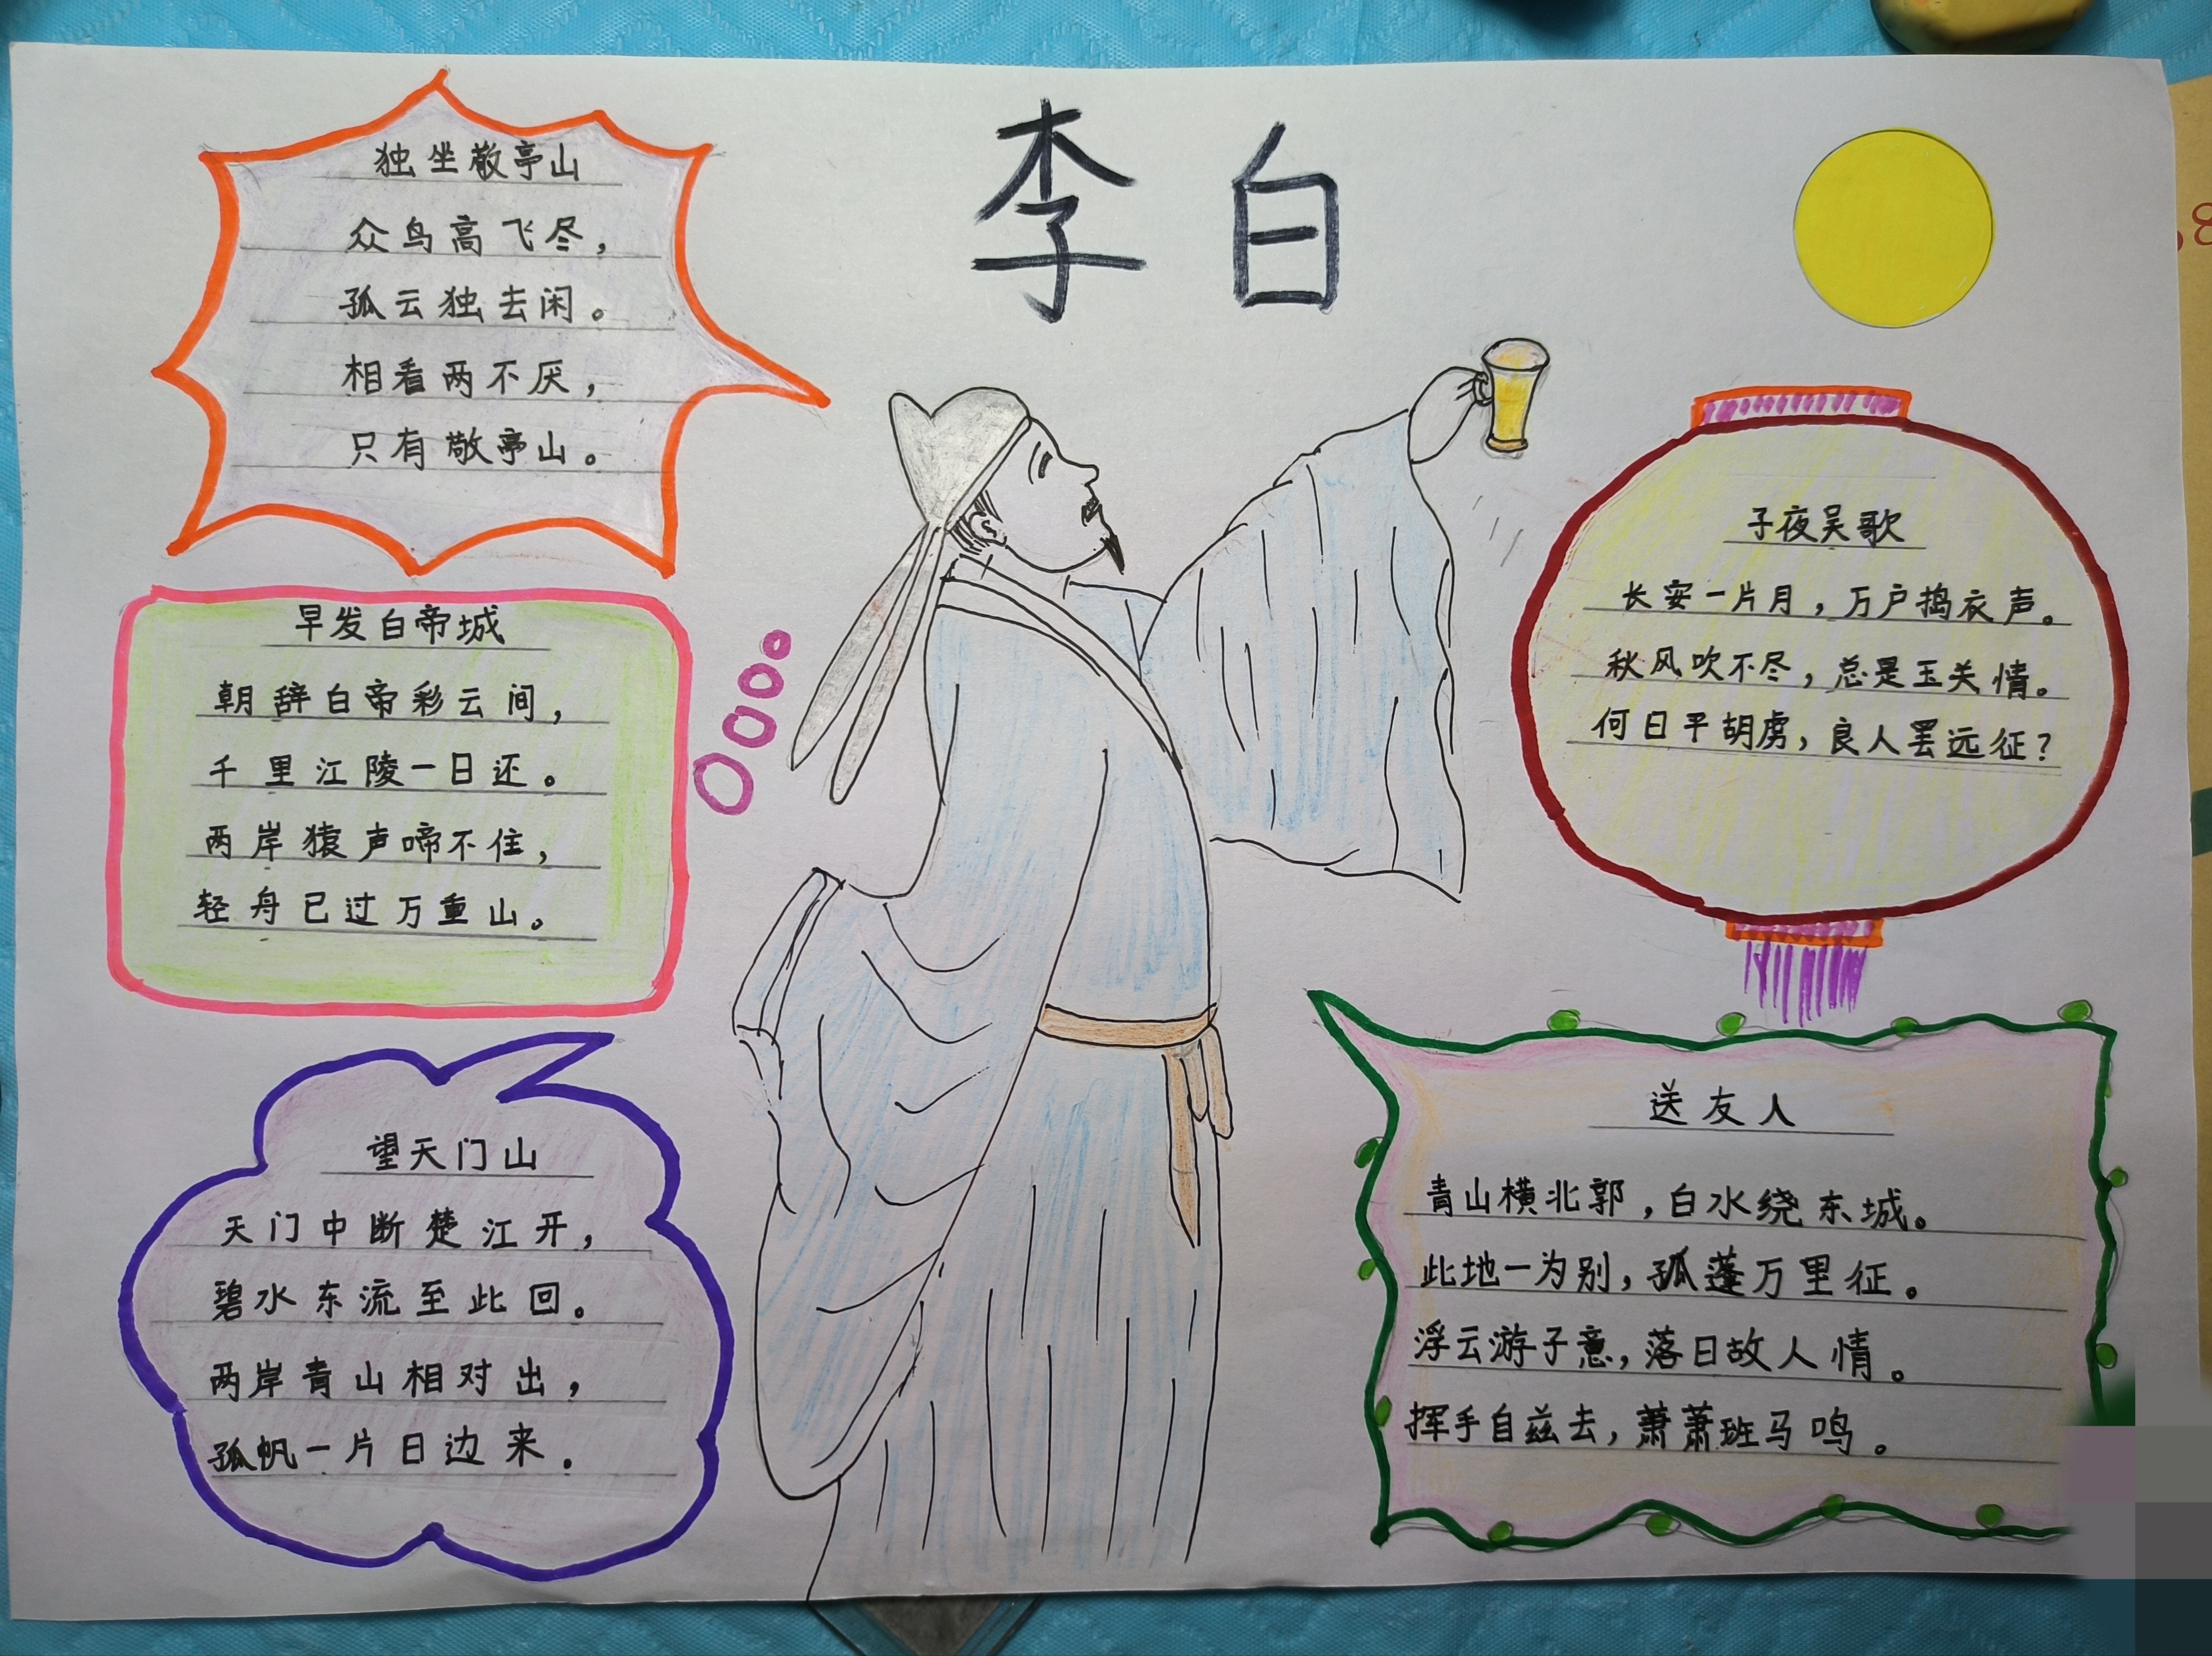 李白
独坐敬亭山
众鸟高飞尽，
孤云独去闲。
相看两不厌，
只有敬亭山。
早发白帝城
朝辞白帝彩云间，
千里江陵一日还。
两岸猿声啼不住，
轻舟已过万重山。
望天门山
天门中断楚江开，
碧水东流至此回。
两岸青山相对出，
孤帆一片日边来．
子夜吴歌
长安一片月，万户捣衣声。
秋风吹不尽，总是玉关情。
何日平胡虏，良人罢远征？
送友人
青山横北郭，白水绕东城。
此地一为别，孤蓬万里征。
浮云游子意，落日故人情。
挥手自兹去，萧萧班马鸣。